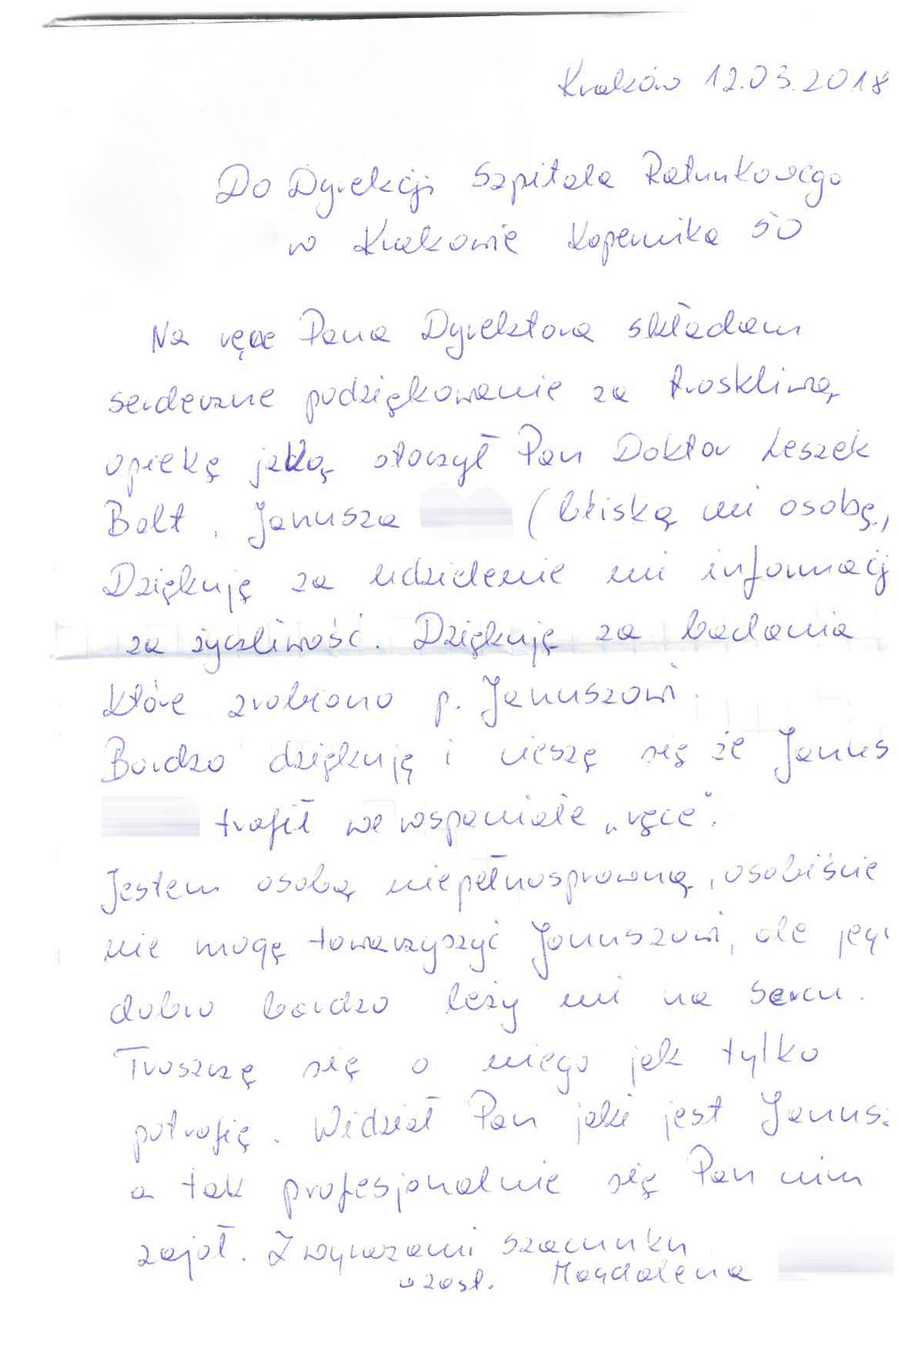 Kraków 12.03.2018
Do Dyrekcji Szpitala Ratunkowego
w Krakowie Kopernika 50
Na ręce Pana Dyrektora składam
serdeczne podziękowanie za troskliwą
opiekę jaką otoczył Pan Doktor Leszek
Bolt, Janusza (bliską mi osobę,
Dziękuję za udzielenie mi informacji
za życzliwość. Dziękuję za badania
które zrobiono p. Januszowi.
Bardzo dziękuję i cieszę się że Janus
trafił we wspaniałe „ręce”.
Jestem osobą niepełnosprawną, osobiście
nie mogę towarzyszyć Januszowi, ale jego
dobro bardzo leży mi na sercu.
Troszczę się o niego jak tylko
potrafię. Widział Pan jaki jest Janus
a tak profesjonalnie się Pan nim
zajął. Z wyrazami szacunku
Magdalena